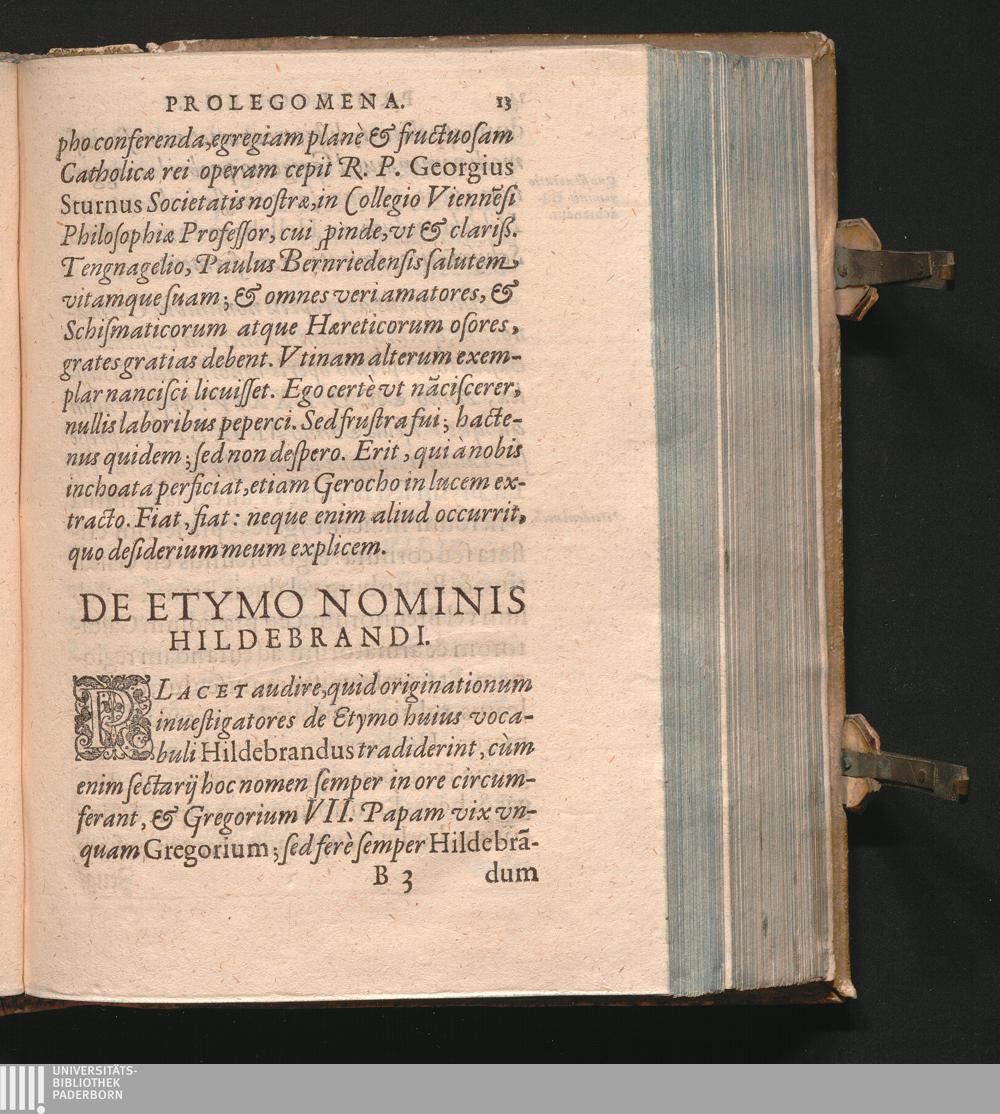 PROLEGOMENA. 13
pho conferenda, egregiam planè & fructuoſam
Catholicæ rei operam cepit R. P. Georgius
Sturnus Societatis noſtræ, in Collegio Vienнẽſi
Philoſophiæ Profeſſor, cui ꝓinde, vt & clariß.
Tengnagelio, Paulus Bernriedenſis ſalutem
vitamque ſuam; & omnes veri amatores, &
Schiſmaticorum atque Hæreticorum oſores,
grates gratias debent. Vtinam alterum exem-
plar nanciſci licuiſſet. Ego certè vt nãciſcerer,
nullis laboribus peperci. Sed fruſtra fui; hacte-
nus quidem; ſed non deſpero. Erit, qui à nobis
inchoata perficiat, etiam Gerocho in lucem ex-
tracto. Fiat, fiat: neque enim aliud occurrit,
quo deſiderium meum explicem.
DE ETYMO NOMINIS
HILDEBRANDI.
PLACET audire, quid originationum
inueſtigatores de Etymo huius voca-
buli Hildebrandus tradiderint, cùm
enim ſectarij hoc nomen ſemper in ore circum-
ferant, & Gregorium VII. Papam vix vn-
quam Gregorium; ſed ferè ſemper Hildebrã-
B 3 dum
UNIVERSITÄTS-
BIBLIOTHEK
PADERBORN